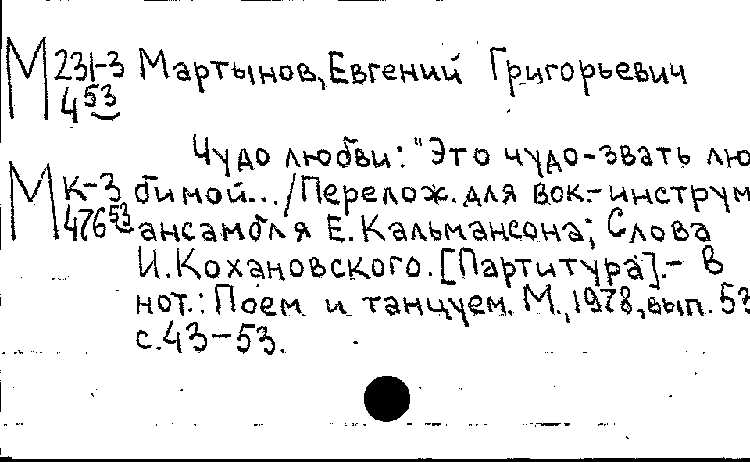 М 231-3 Мартынов, Евгений Григорьевич
4 53
Чудо любви: "Это чудо-звать лю
М К-3 бимой.../Перелож. для вок.-инструм
476 53 ансамбля Е. Кальмансона; Слова
И. Кохановского. [Партитура].- В
нот.: Поем и танцуем. М., 1978, вып. 53
с. 43-53.